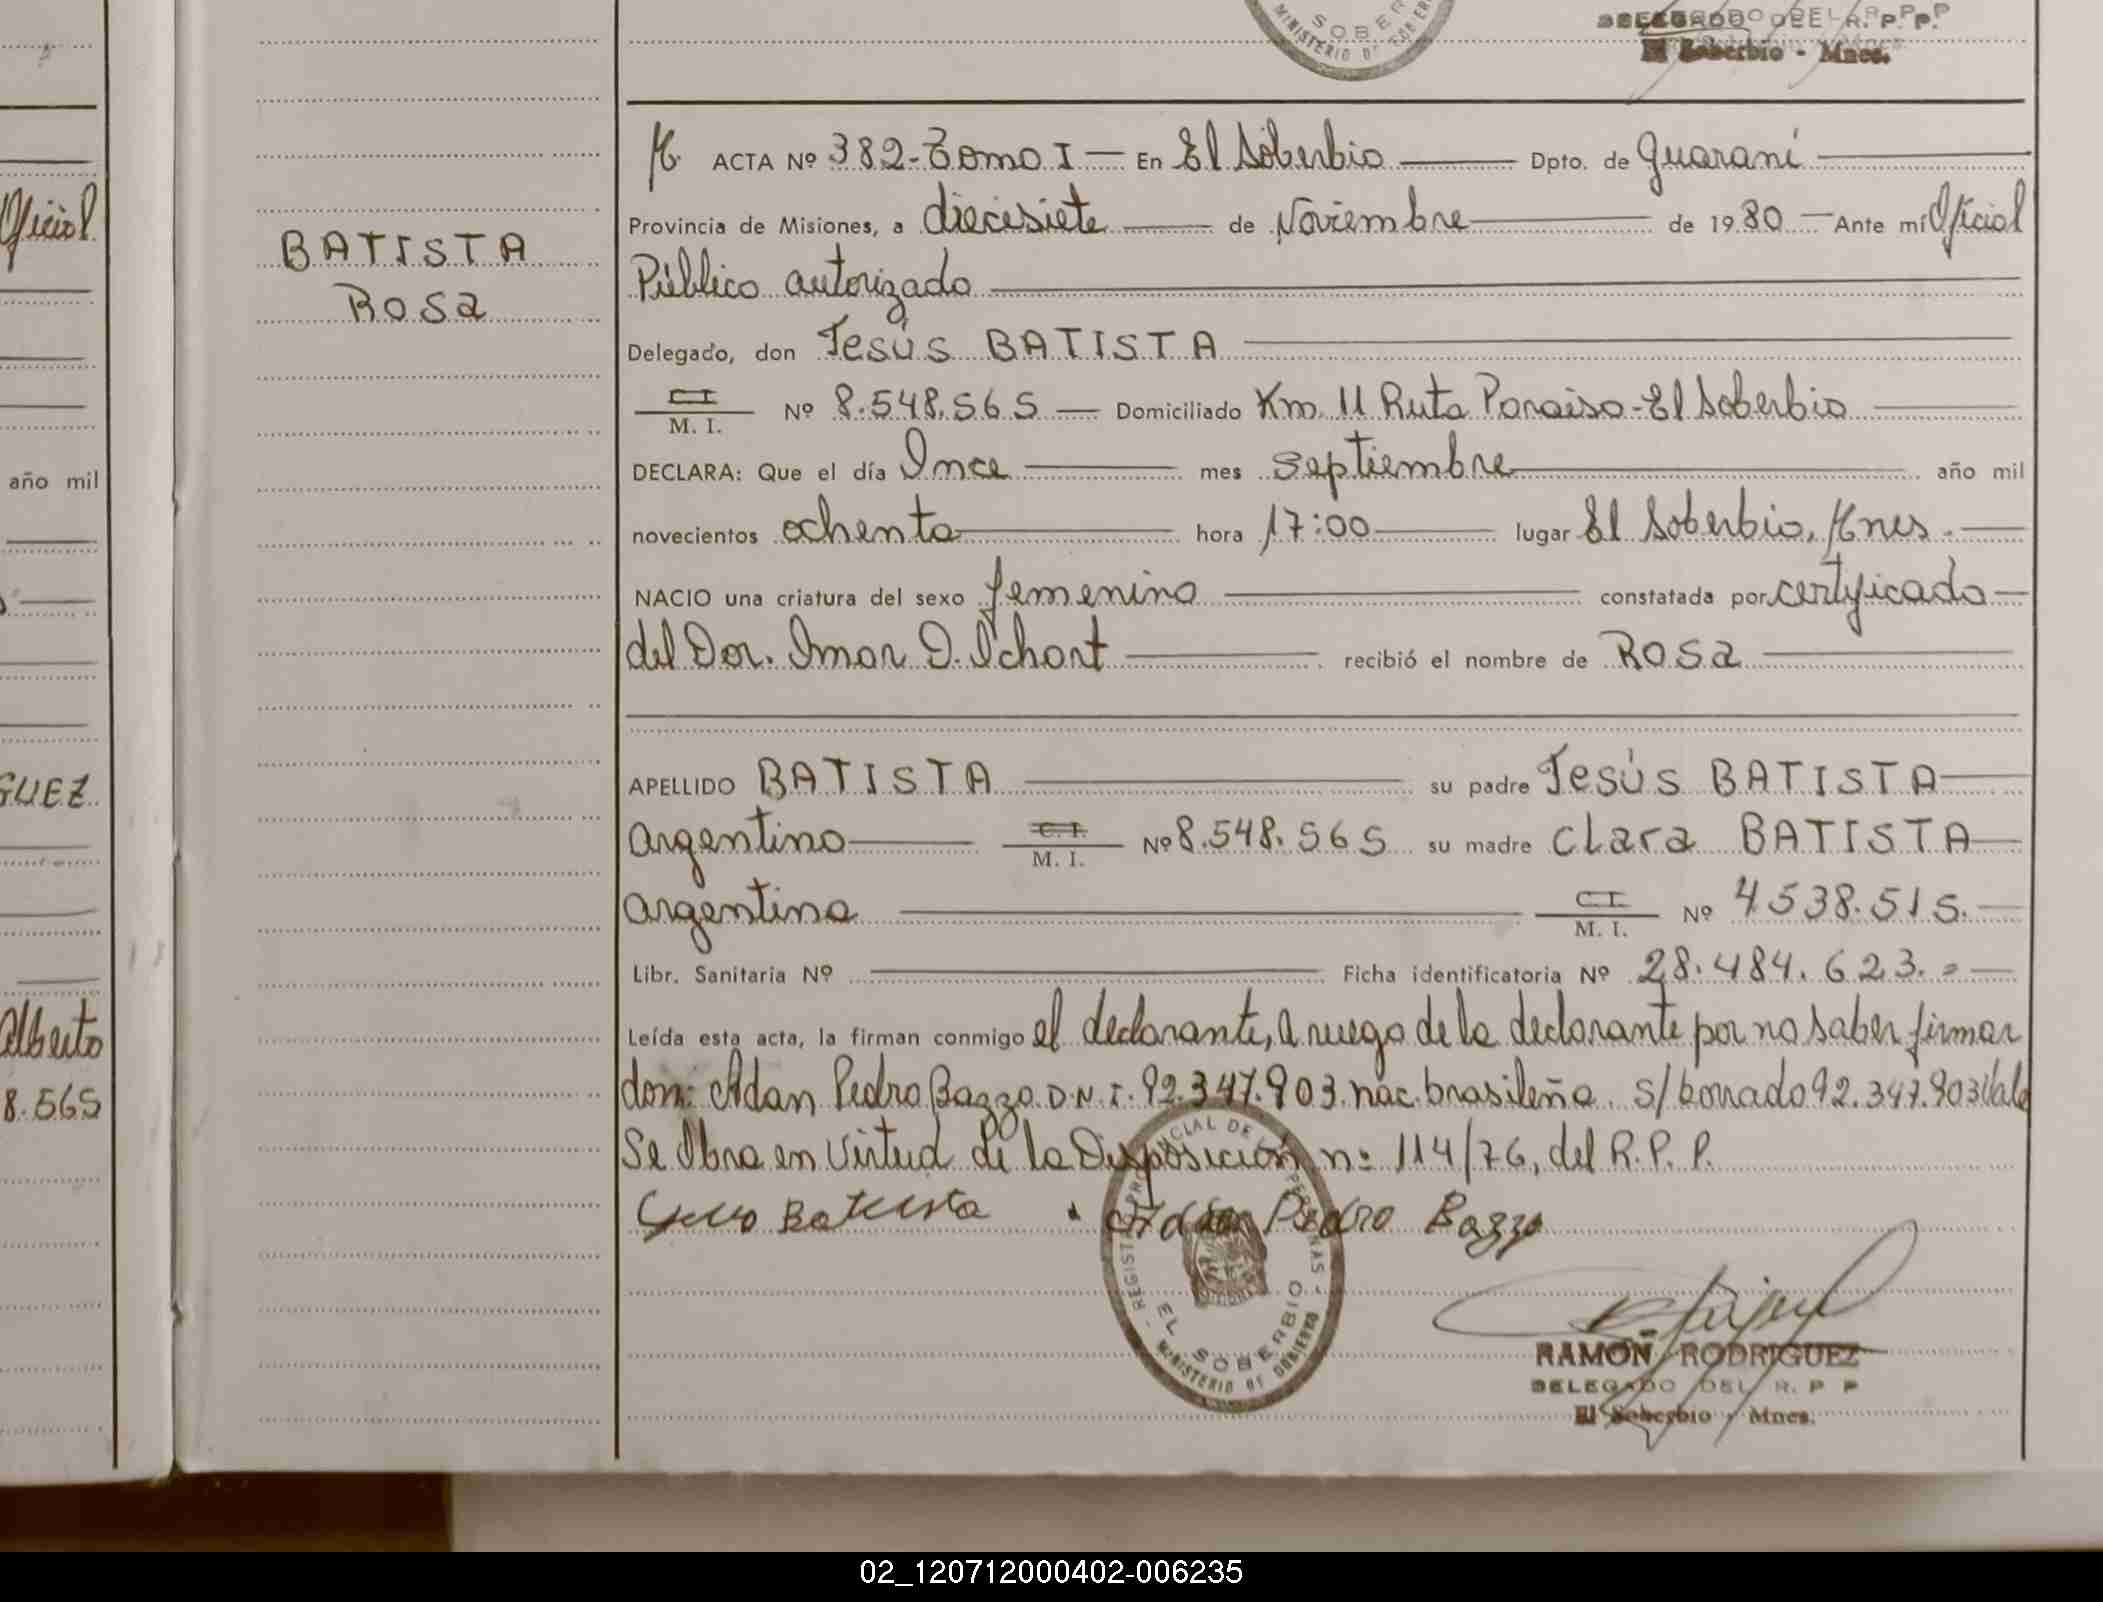 DELEGADO DEL R.P.P.
El Soberbio - Mnes.
SOBER
MINISTERIO DE GOBIER
Oficial
año mil
GUEZ
Alberto
8.565
BATISTA
Rosa
M. ACTA Nº 382-Tomo I — En El Soberbio — Dpto. de Guaraní
Provincia de Misiones, a diecisiete — de Noviembre — de 1980 — Ante mí Oficial
Público autorizado
Delegado, don Jesús BATISTA
C.I.
M. I. Nº 8.548.565 — Domiciliado Km. 11 Ruta Paraiso-El Soberbio
DECLARA: Que el día Once — mes septiembre — año mil
novecientos ochenta — hora 17:00 — lugar El Soberbio, Mnes.
NACIO una criatura del sexo femenino — constatada por certificado
del Dor. Omar D. Ichart — recibió el nombre de Rosa
APELLIDO BATISTA — su padre Jesús BATISTA
argentino — C.I.
M. I. Nº 8.548.565 su madre Clara BATISTA
argentina — C.I.
M. I. Nº 4.538.515.
Libr. Sanitaria Nº — Ficha identificatoria Nº 28.484.623.
Leída esta acta, la firman conmigo el declarante, a ruego de la declarante por no saber firmar
don: Adan Pedro Bazzo D.N.I. 92.347.903 nac. brasileña. s/borrado 92.347.903 Vale
Se Obra en Virtud de la Disposición nº 114/76, del R.P.P.
Batista Adan Pedro Bazzo
REGISTRO PROVINCIAL DE LAS PERSONAS
EL SOBERBIO
MINISTERIO DE GOBIERNO
RAMON RODRIGUEZ
DELEGADO DEL R. P P
El Soberbio - Mnes.
02_120712000402-006235